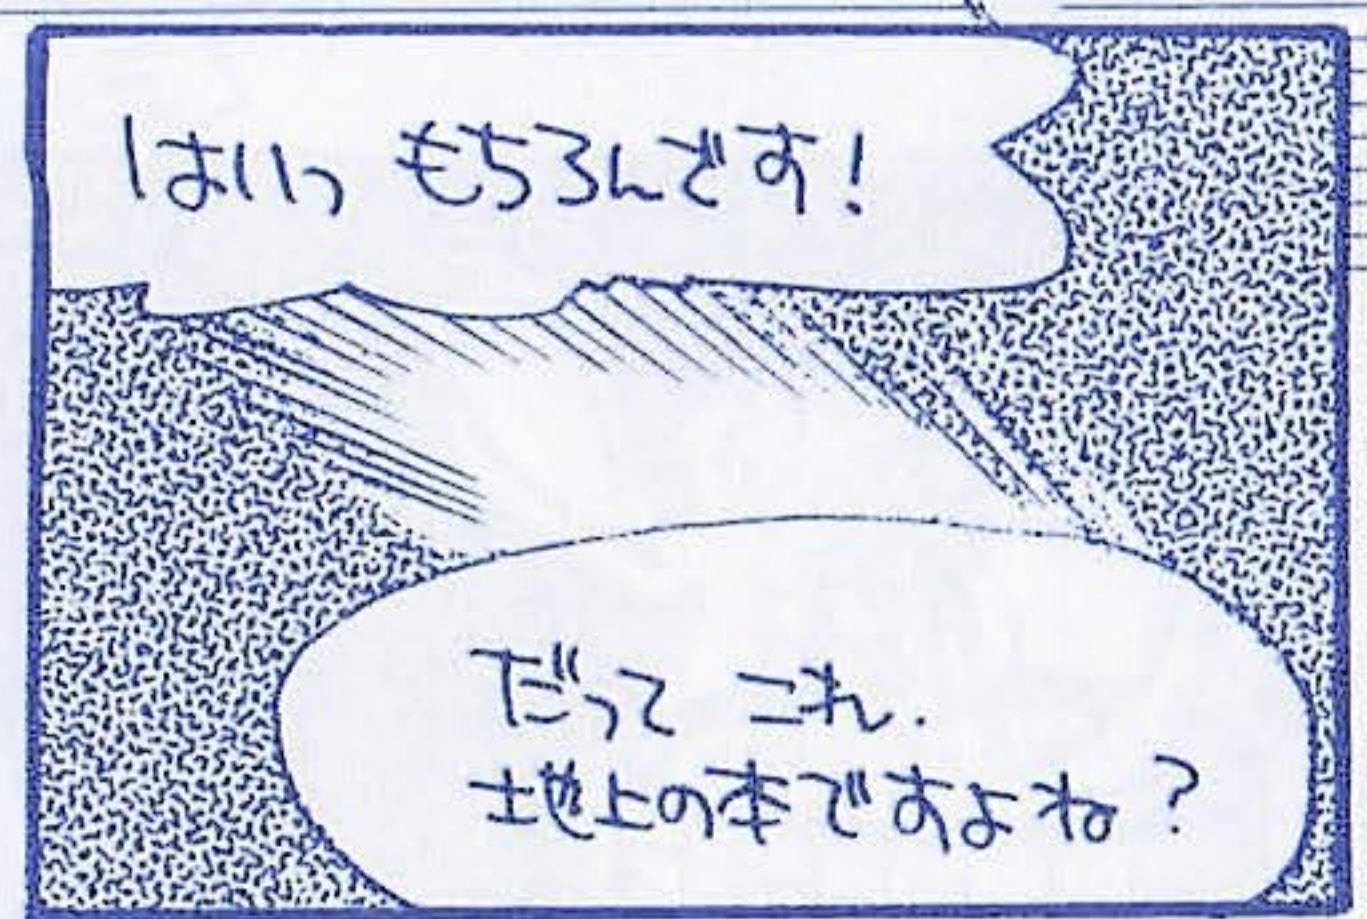 はいっ もちろんです!
だって これ.
土地上の本ですよね?